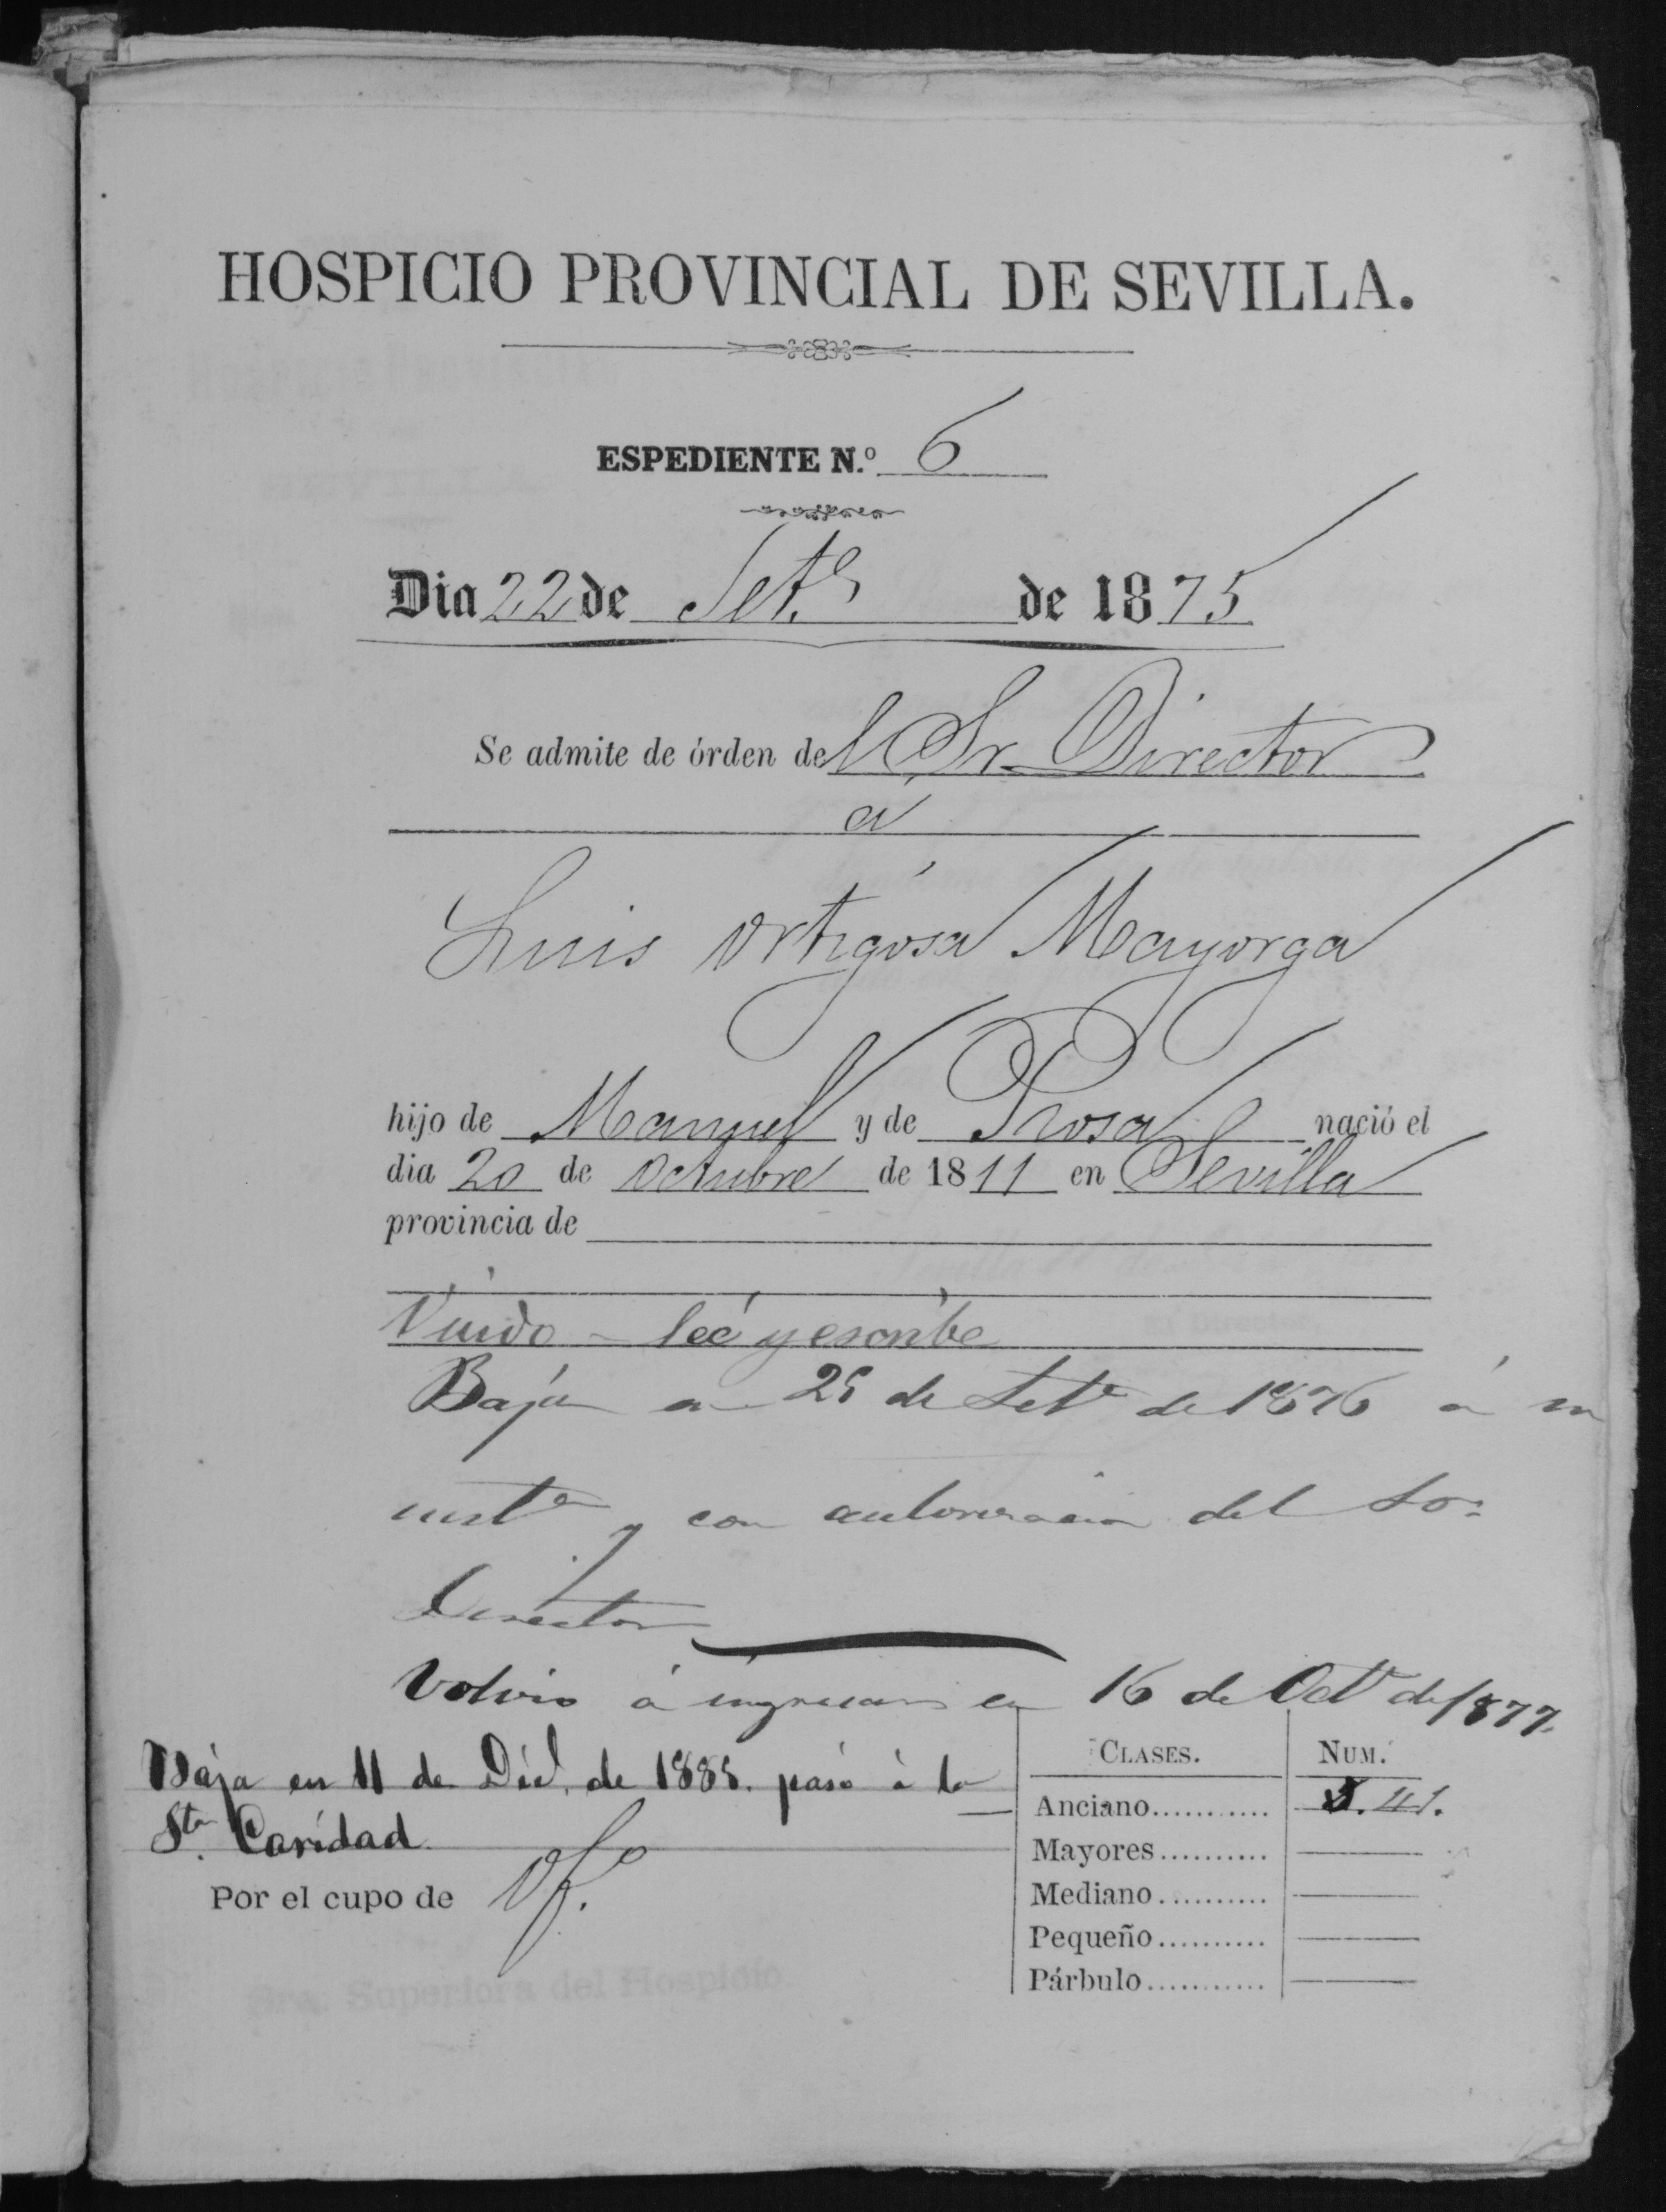 HOSPICIO PROVINCIAL DE SEVILLA.
ESPEDIENTE N.º 6
Dia 22 de Set.e de 1875
Se admite de órden del Sr. Director
a
Luis Ortigosa Mayorga
hijo de Manuel y de Rosa nació el
dia 20 de Octubre de 1811 en Sevilla
provincia de
Viudo - lee y escribe
Baja en 25 de Set.e de 1876 á su
inst.a y con autorizacion del Sor.
Director
Volvio á ingresar en 16 de Oct.e de 1877.
Baja en 11 de Dic.e de 1885. pasó à la
Sta. Caridad.
Por el cupo de
CLASES. NUM.
Anciano........... 41.
Mayores..........
Mediano..........
Pequeño..........
Párbulo...........
Sra. Superiora del Hospicio.